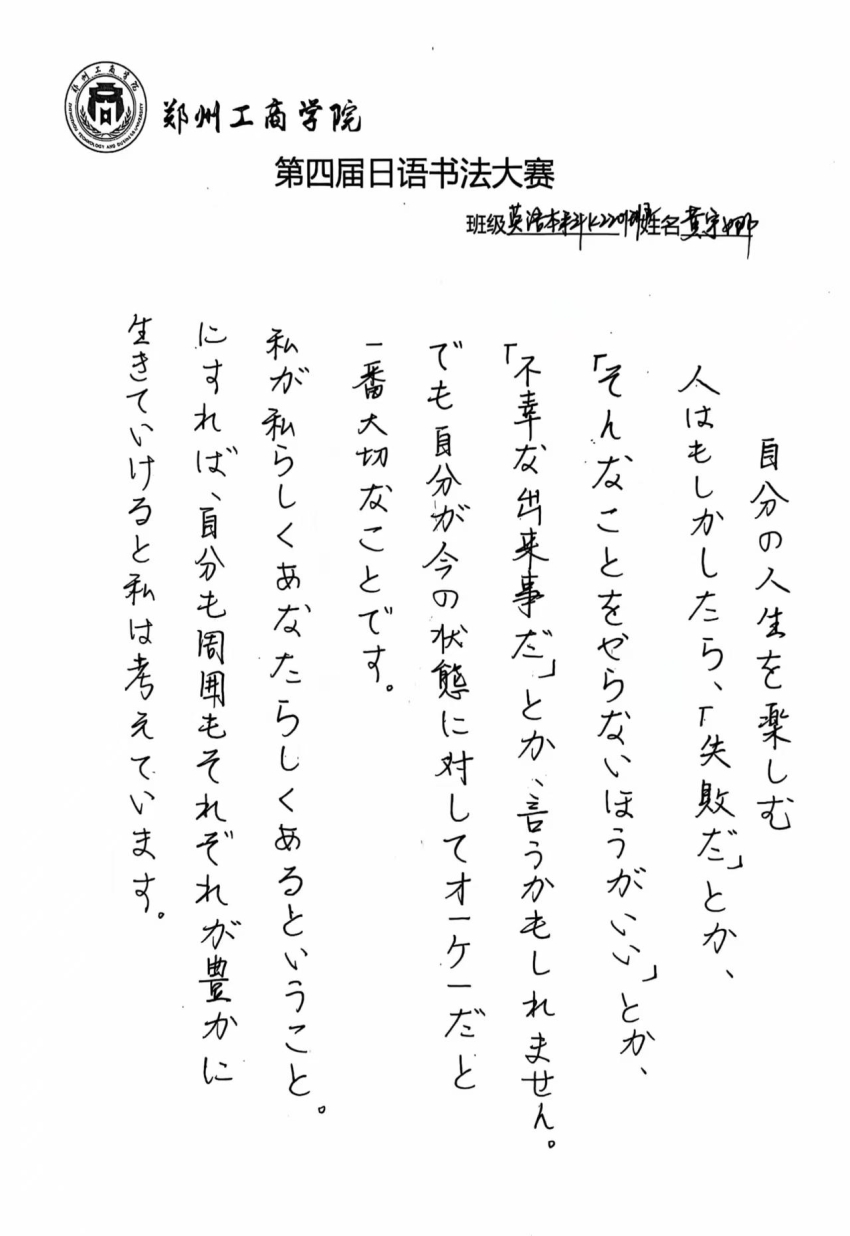 郑州工商学院
第四届日语书法大赛
班级英语本科K2201班姓名黄宗娜
自分の人生を楽しむ
人はもしかしたら、「失敗だ」とか、
「そんなことをやらないほうがいい」とか、
「不幸な出来事だ」とか、言うかもしれません。
でも自分が今の状態に対してオーケーだと
一番大切なことです。
私が私らしくあなたらしくあるということ。
にすれば、自分も周囲もそれぞれが豊かに
生きていけると私は考えています。